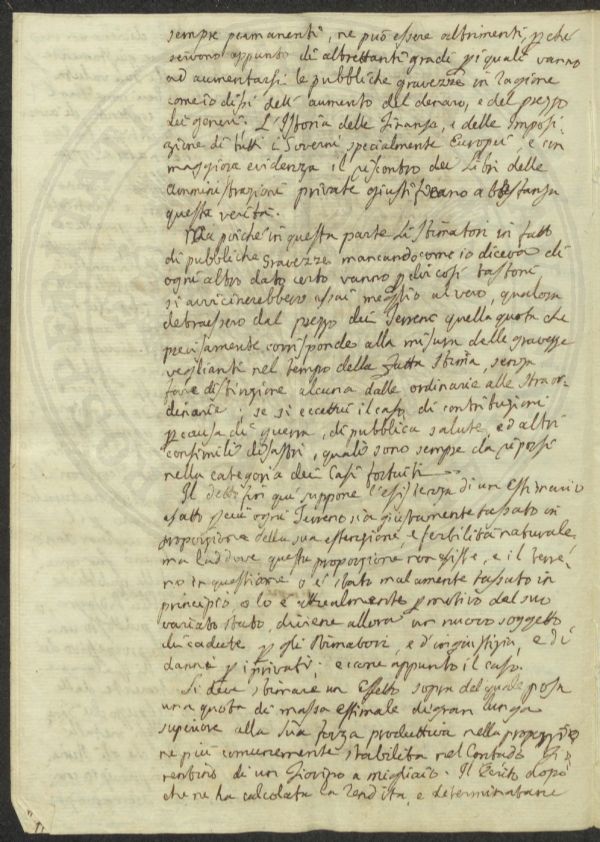 sempre permanenti, ne può essere altrimenti, pchè
servono appunto di altrettanti gradi p i quali vanno
ad aumentarsi le pubbliche gravezze in ragione
come io dissi dell' aumento del denaro, e del prezzo
dei generi. L'Istoria delle Finanza, e delle Imposi-
zione di tutti i Governi specialmente Europei, e con
maggiore evidenza il riscontro dei Libri delle
Amministrazioni private giustificano abbastanza
questa verità.
Ma poichè in questa parte li Stimatori in fatto
di pubbliche gravezze mancando come io diceva di
ogni altro dato certo vanno p così tastoni,
si avvicinerebbero assai meglio al vero, qualora
detraessero dal prezzo dei Terreni quella quota che
precisamente corrisponde alla misura delle gravezze
veglianti nel tempo della fatta stima, senza
fare distinzione alcuna dalle ordinarie alle straor-
dinarie; se si eccettui il caso di contribuzioni
p causa di guerra, di pubblica salute, ed altri
consimili disastri, quali sono sempre da riporsi
nella categoria dei Casi fortuiti
Il detto fin quì suppone l'esistenza di un Estimario
esatto p cui ogni Terreno sia giustamente tassato in
proporzione della sua estensione, e fertilità naturale,
ma laddove questa proporzione non esiste, e il terre-
no in questione o è stato malamente tassato in
principio, o lo è attualmente p motivo del suo
variato stato, diviene allora un nuovo soggetto
di cadute p gli stimatori, e d'ingiustizia, e di
danni p i privati; e come appunto il caso.
Si deve stimare un Effetto sopra del quale posa
una quota di massa estimale di gran lunga
superiore alla sua forza produttiva nella proporzio
ne più comunemente stabilita nel Contado Fio
rentino di un Fiorino a migliaio. Il Perito dopo
che ne ha calcolata la rendita, e determinatane